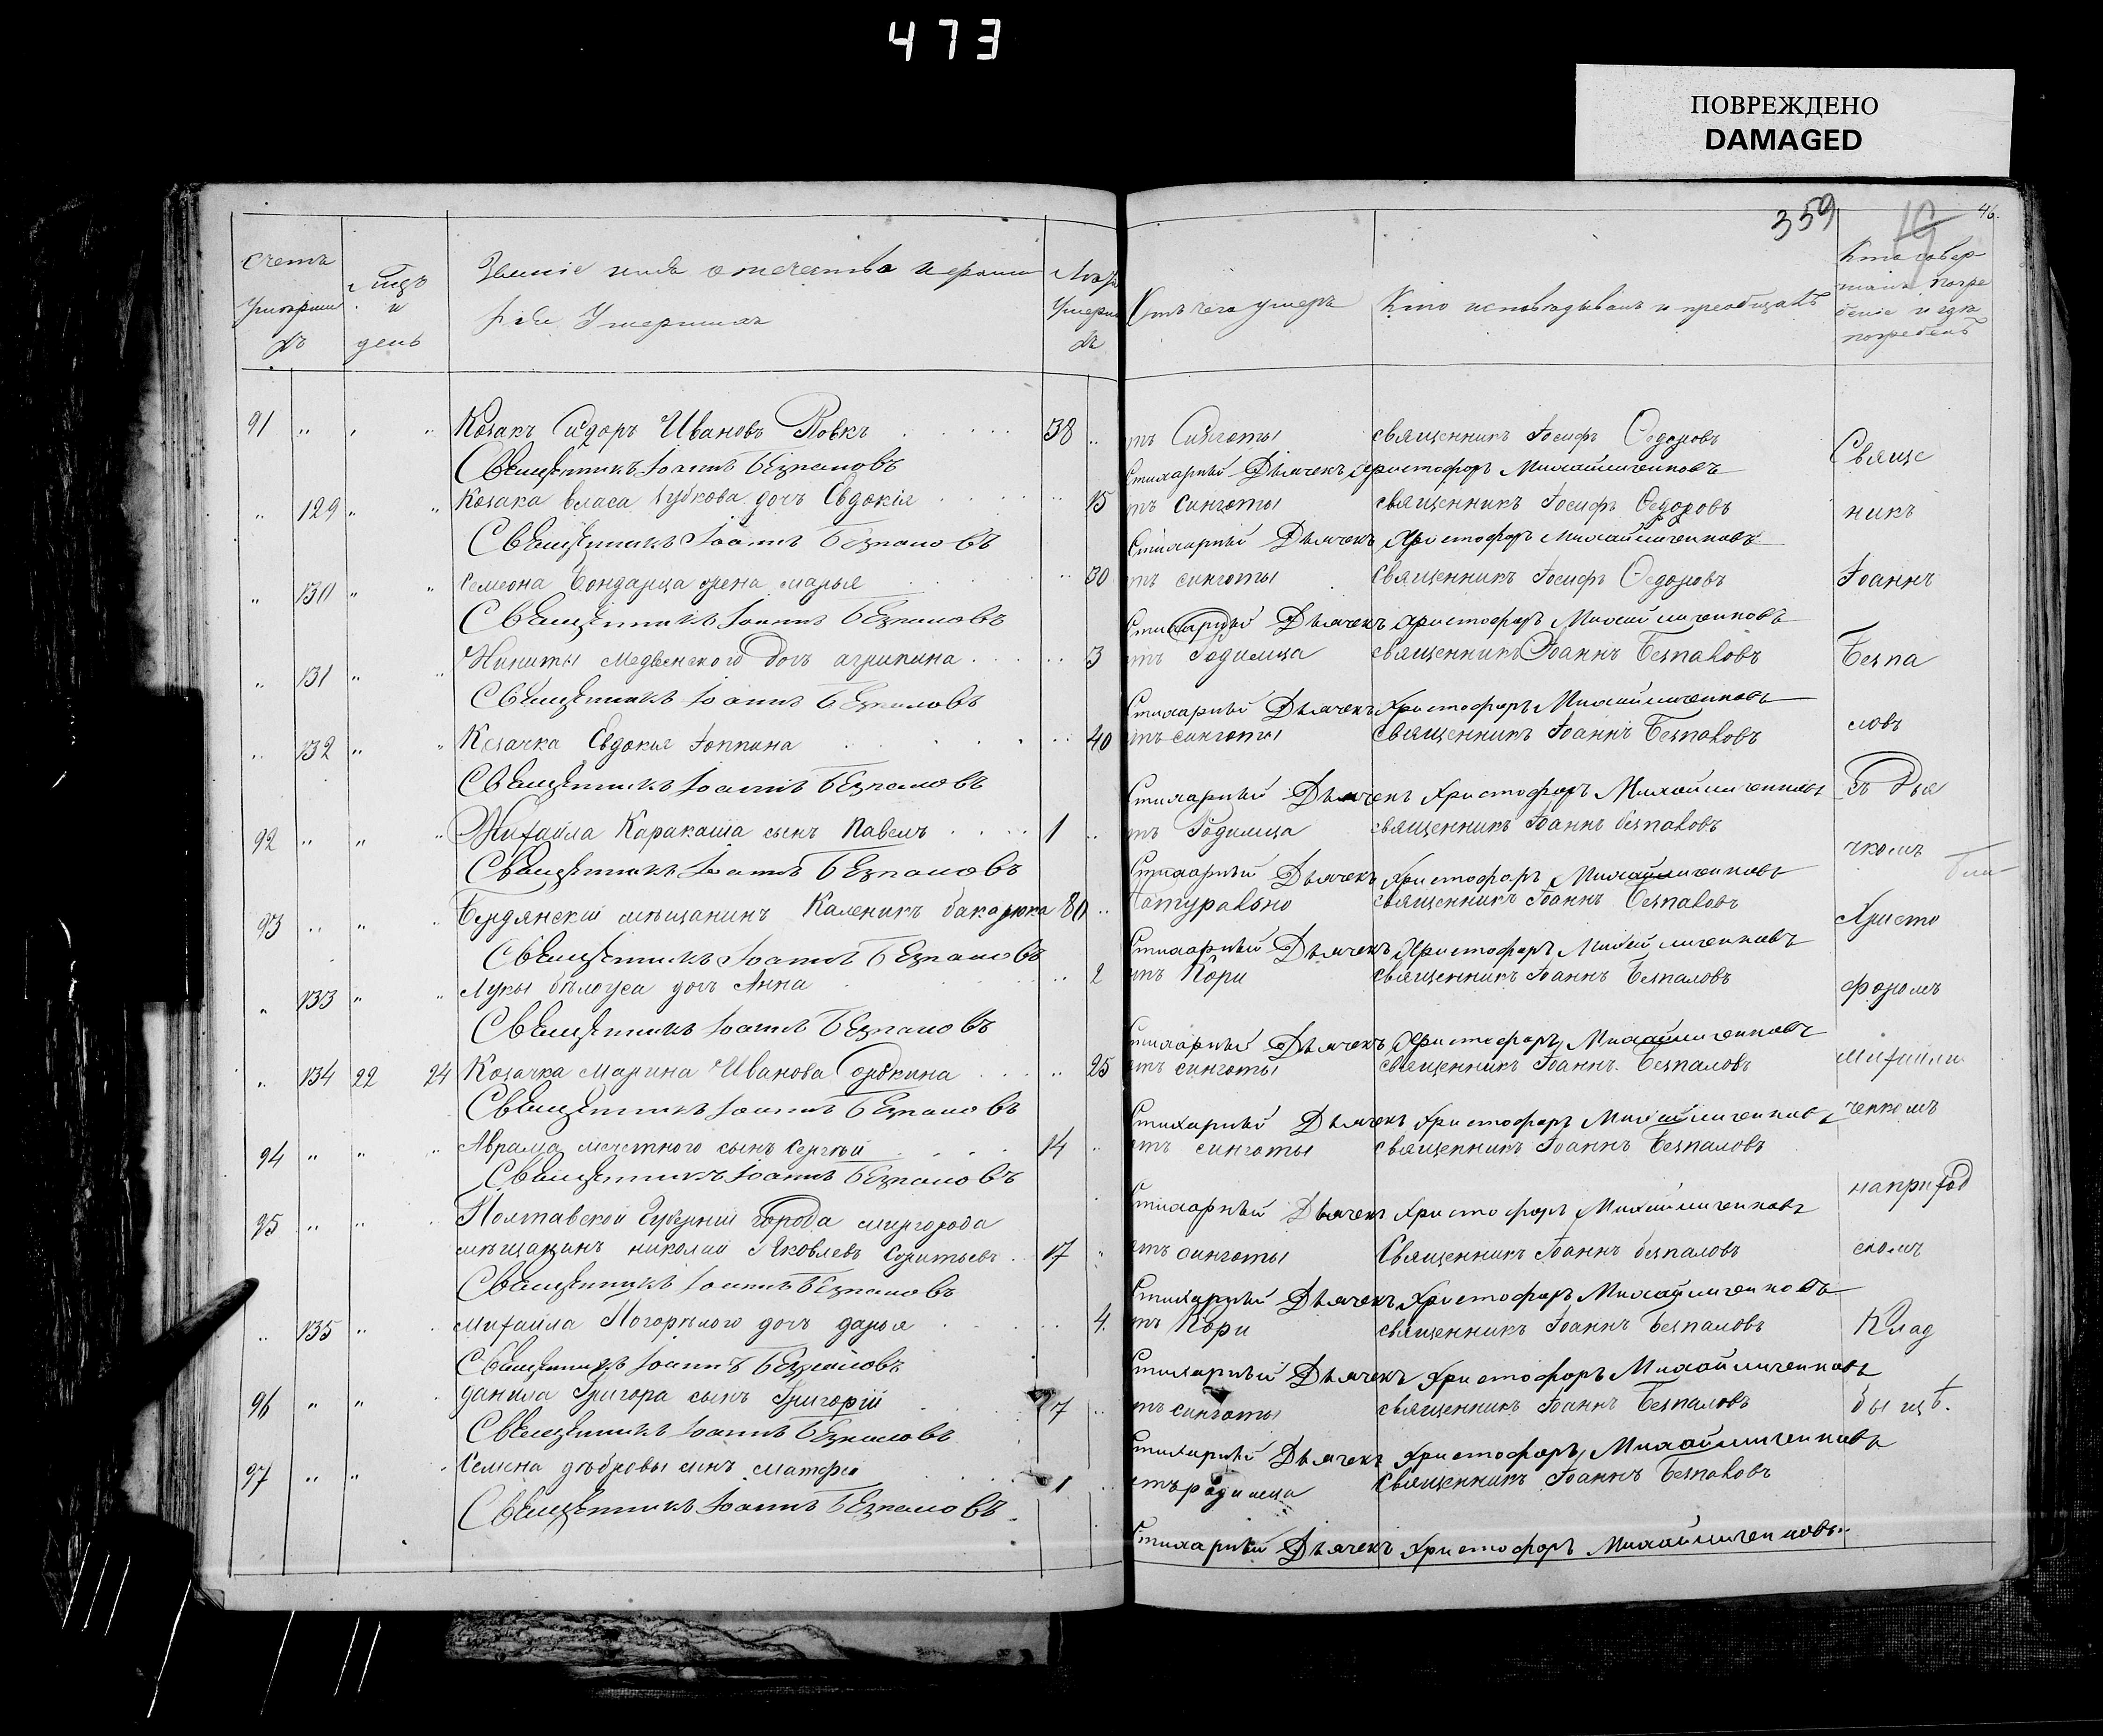 473
ПОВРЕЖДЕНО
DAMAGED
359
19
46.
Счетъ умершихъ
Мцъ и день
Званіе имя отечество и фамилія Умершихъ
Лѣта Умершихъ
Отъ чего умеръ
Кто исповѣдывалъ и преобщалъ
Кто совершалъ погребеніе и гдѣ погребенъ
91 " " " Козакъ Сидоръ Ивановъ Вовкъ 38 " отъ Сухоты священникъ Іосифъ Ѳедоровъ
Священникъ Іоаннъ Безпаловъ Стихарный Дьячекъ Христофоръ Михайличенковъ
" 129 " " Козака Власа Губкова дочъ Евдокія " 15 отъ сухоты священникъ Іосифъ Ѳедоровъ
Священникъ Іоаннъ Безпаловъ Стихарный Дьячекъ Христофоръ Михайличенковъ
" 130 " " Семеона Бондарца жена марья " 30 отъ сухоты священникъ Іосифъ Ѳедоровъ
Священникъ Іоаннъ Безпаловъ Стихарный Дьячекъ Христофоръ Михайличенковъ
" 131 " " Никиты Медвенского дочъ агрипина " 3 отъ Родимца священникъ Іоаннъ Безпаловъ
Священникъ Іоаннъ Безпаловъ Стихарный Дьячекъ Христофоръ Михайличенковъ
" 132 " " Козачка Евдокия " 40 отъ сухоты священникъ Іоаннъ Безпаловъ
Священникъ Іоаннъ Безпаловъ Стихарный Дьячекъ Христофоръ Михайличенковъ
92 " " " Михаила Каракаша сынъ Павелъ 1 " отъ Родимца священникъ Іоаннъ безпаловъ
Священникъ Іоаннъ Безпаловъ Стихарный Дьячекъ Христофоръ Михайличенковъ
93 " " " Бердянскій мѣщанинъ Каленикъ 80 " Натурально священникъ Іоаннъ Безпаловъ
Священникъ Іоаннъ Безпаловъ Стихарный Дьячекъ Христофоръ Михайличенковъ
" 133 " " Луки бѣлоуса дочъ Анна " 2 отъ Кори священникъ Іоаннъ Безпаловъ
Священникъ Іоаннъ Безпаловъ Стихарный Дьячекъ Христофоръ Михайличенковъ
" 134 22 24 Козачка Марина Иванова " 25 отъ сухоты священникъ Іоаннъ Безпаловъ
Священникъ Іоаннъ Безпаловъ Стихарный Дьячекъ Христофоръ Михайличенковъ
94 " " " Аврама мечетного сынъ Сергѣй 14 " отъ сухоты священникъ Іоаннъ Безпаловъ
Священникъ Іоаннъ Безпаловъ Стихарный Дьячекъ Христофоръ Михайличенковъ
95 " " " Полтавской Губерніи Города миргорода
мѣщанинъ николай Яковлевъ 17 " отъ сухоты Священникъ Іоаннъ безпаловъ
Священникъ Іоаннъ Безпаловъ Стихарный Дьячекъ Христофоръ Михайличенковъ
" 135 " " михаила Погорѣлого дочъ дарья " 4 отъ Кори священникъ Іоаннъ безпаловъ
Священникъ Іоаннъ Безпаловъ Стихарный Дьячекъ Христофоръ Михайличенковъ
96 " " " данила Григора сынъ Григорій 7 " отъ сухоты священникъ Іоаннъ Безпаловъ
Священникъ Іоаннъ Безпаловъ Стихарный Дьячекъ Христофоръ Михайличенковъ
97 " " " Семена дѣбровы синъ 1 " отъ родимца Священникъ Іоаннъ Безпаловъ
Священникъ Іоаннъ Безпаловъ Стихарный Дьячекъ Христофоръ Михайличенковъ
Свяще
никъ
Іоаннъ
Безпа
ловъ
съ Дья
чкомъ
Христо
форомъ
Михайли
ченкомъ
на приход
скомъ
Клад
бищѣ.